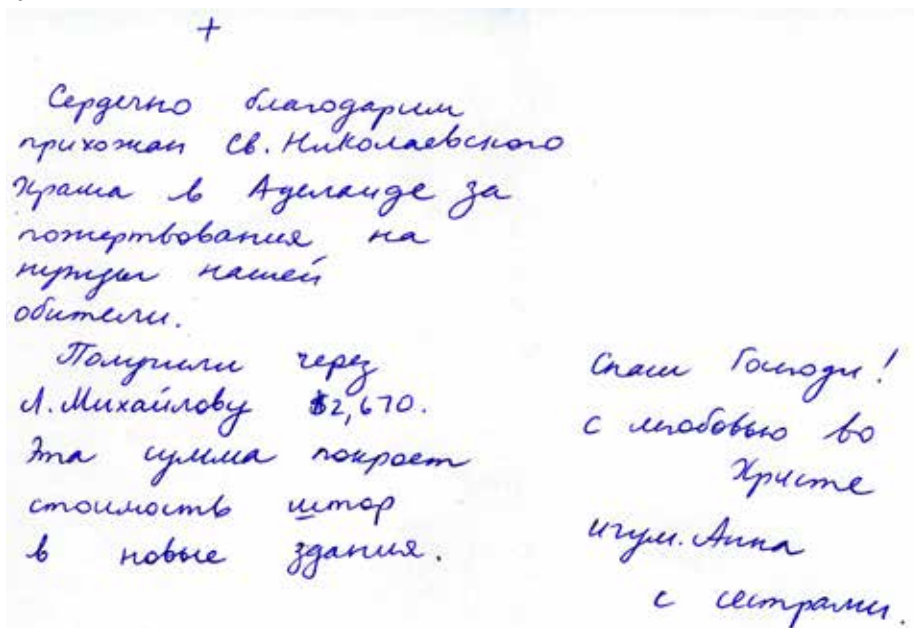 +
Сердечно благодарим
прихожан Св. Николаевского
храма в Аделаиде за
пожертвования на
нужды нашей
обители.
Получили через
Л. Михайлову $2,670.
Эта сумма покроет
стоимость штор
в новые здания.
Спаси Господи!
с любовью во
Христе
игум. Анна
с сестрами.